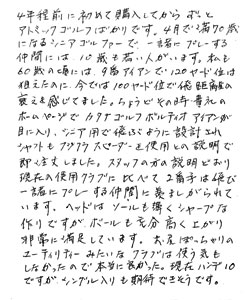 4年程前に初めて購入してからずっと
アトミックゴルフばかりです。4月で満70歳
になるシニアゴルファーで、一緒にプレーする
仲間には10歳も若い人がいます。私も
60歳の頃には、9番アイアンで120ヤード位は
狙えたのに、今では100ヤード位で飛距離の
衰えを感じてました。ちょうどその時貴社の
ホームページで カタナゴルフ ボルティオ アイアンが
目に入り、シニア用で飛ぶように設計され
シャフトもフジクラスペーダーを使用との説明で
即注文しました。スタッフの方の説明どおり
現在の使用クラブに比べて2番手は飛び
一緒にプレーする仲間に羨ましがられて
います。ヘッドはソールも薄くシャープな
作りですが、ボールも充分高く上がり
非常に満足しています。お尻ぽっちゃりの
ユーティリティーみたいなクラブは使う気も
しなかったので本当に良かった。現在ハンデ10
ですが、シングル入りも期待できそうです。